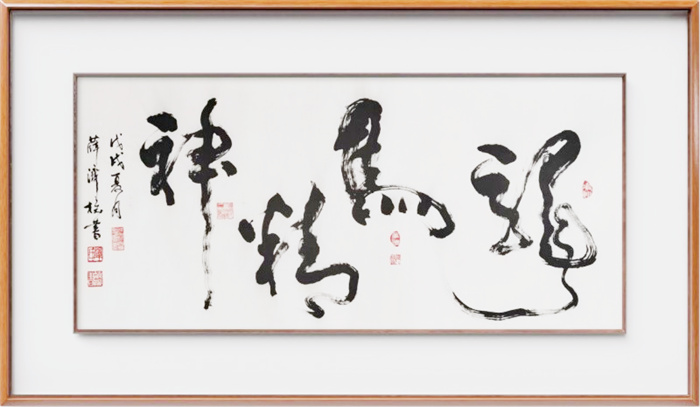 龍馬精神
戊戌夏月
薛澤榆書